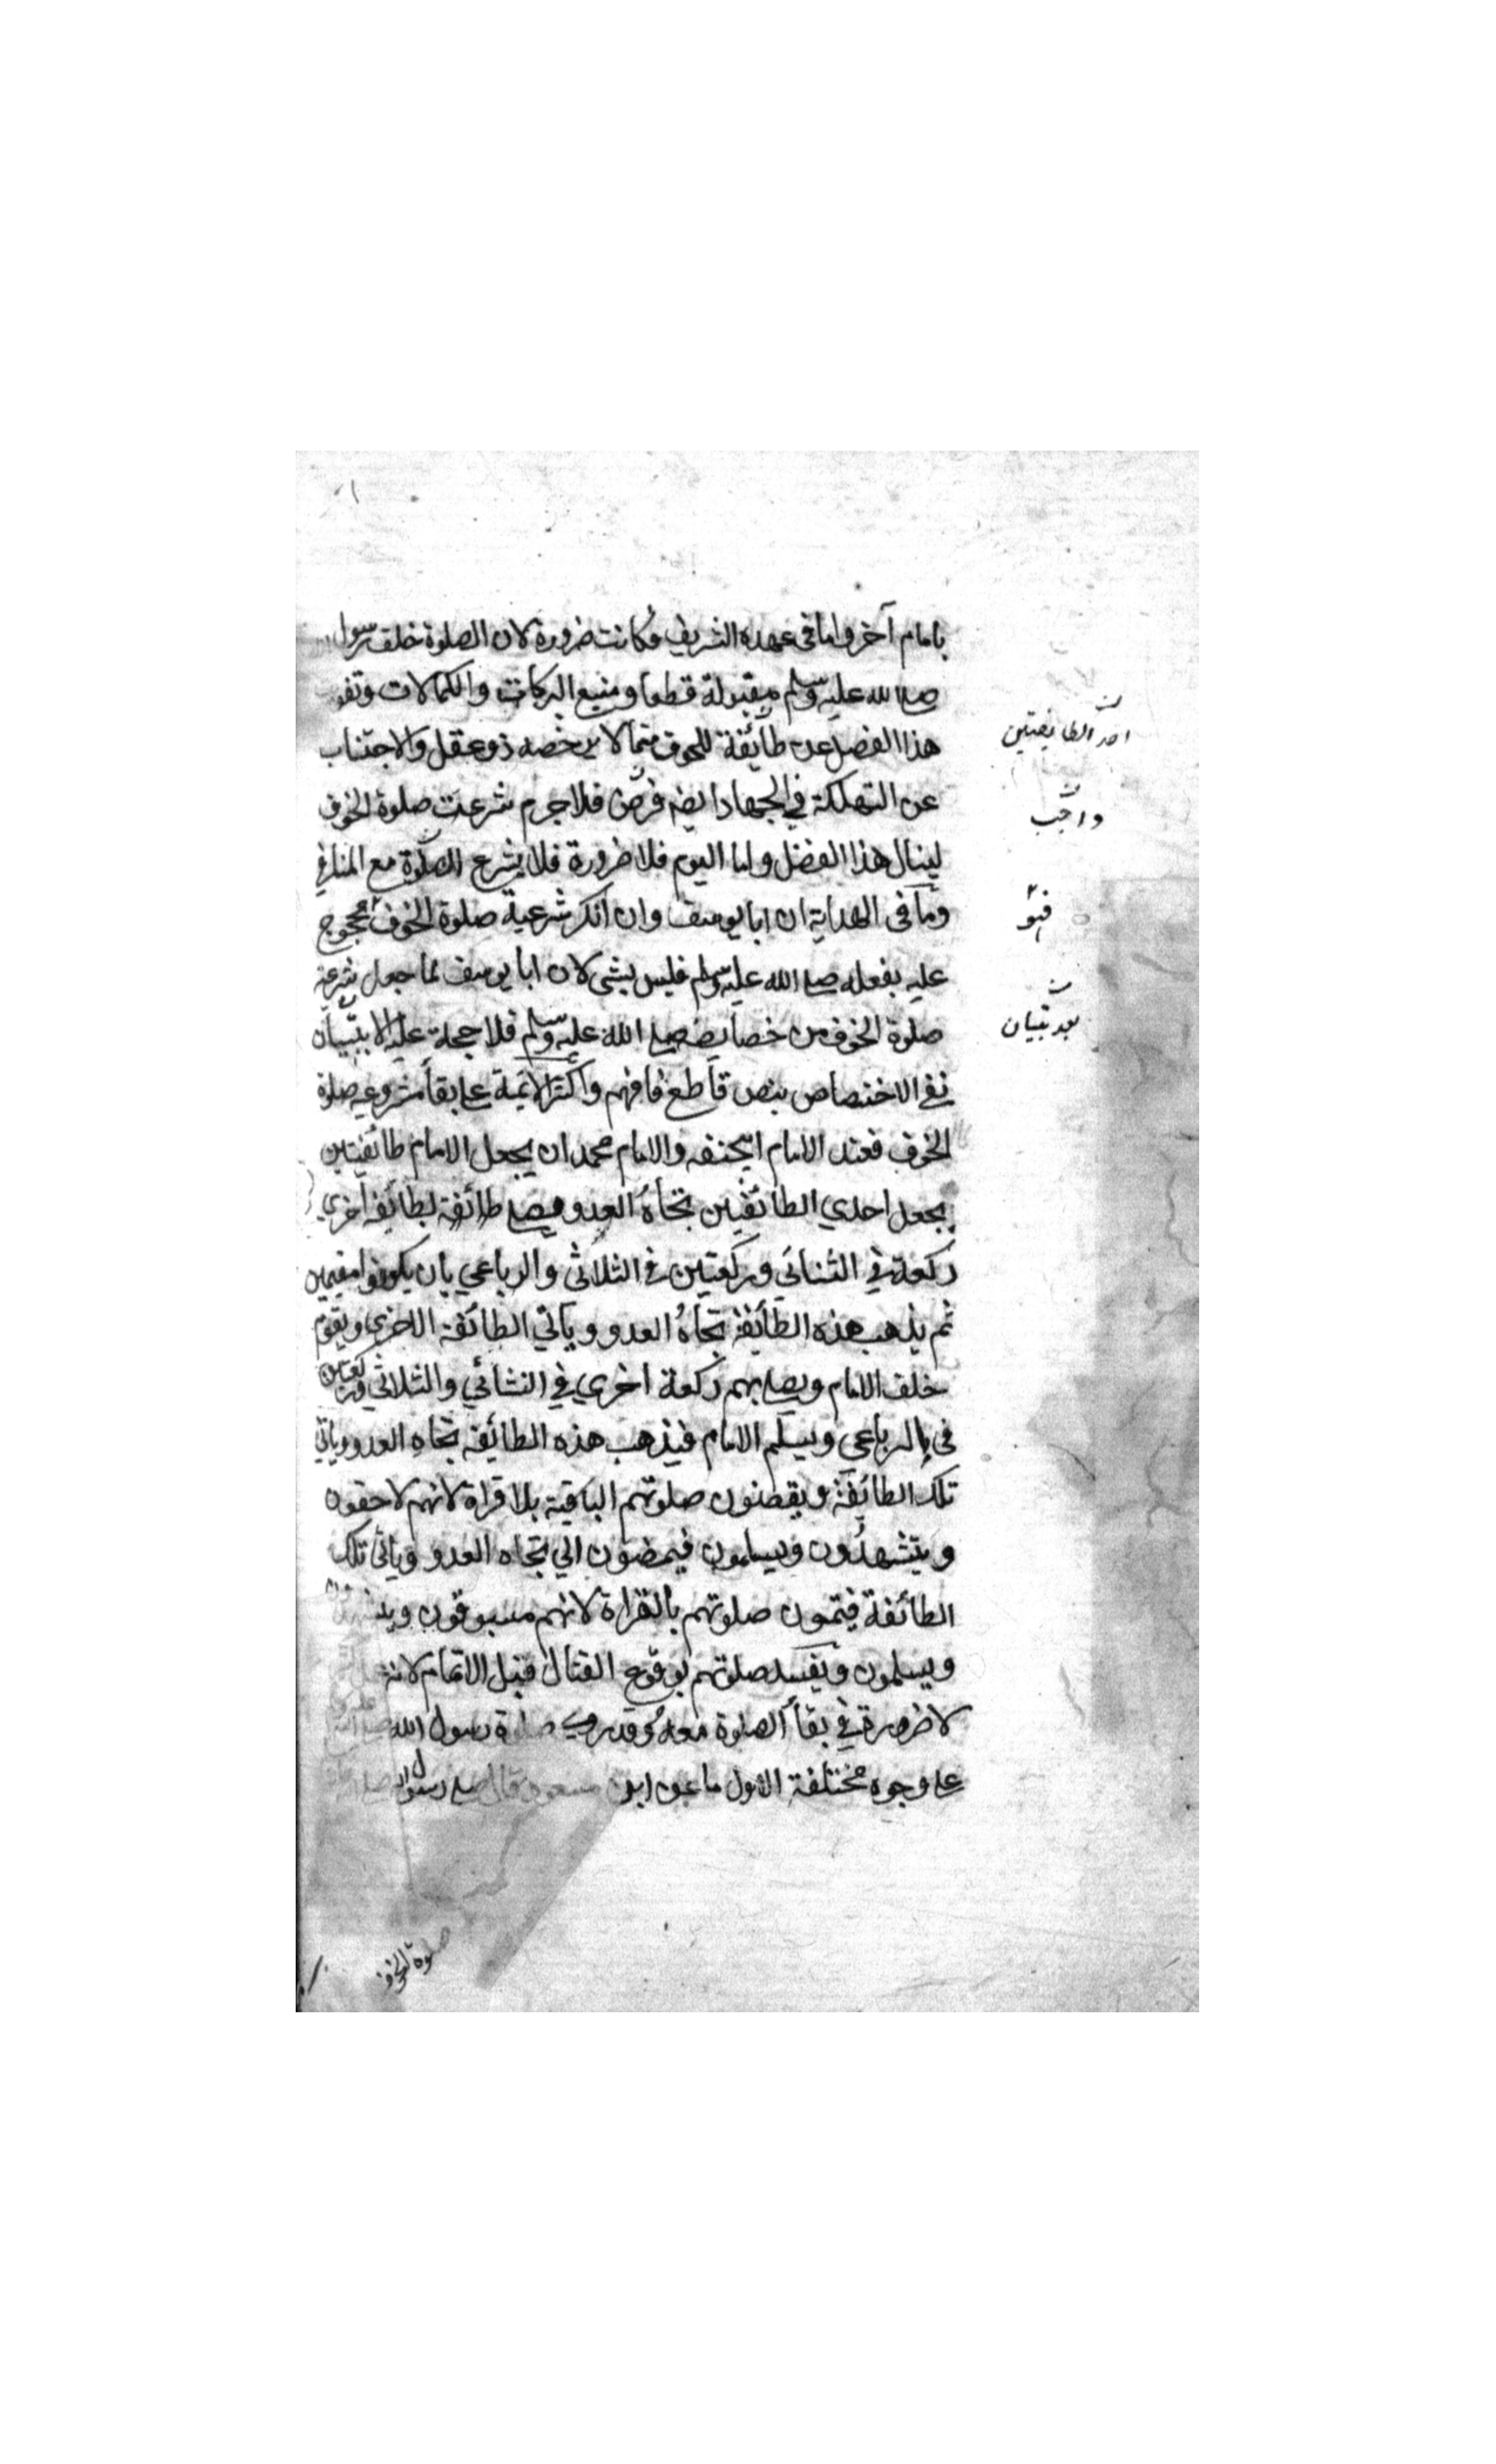 بامام آخر واما فى عهده الشريف فكانت ضرورة لان الصلوة خلف رسول
صلى الله عليه وسلم مقبولة قطعا ومنبع البركات والكمالات وتفو
هذا الفضل عن طائفة للخوف مما لا يرخصه ذو عقل والاجتناب
عن التهلكة في الجهاد ايضه فرض فلا جرم شرعت صلوة الخوف
لينال هذا الفضل واما اليوم فلا ضرورة فلا يشرع الصلوة مع المنافي
وما فى الهداية ان ابا يوسف وان انكر شرعية صلوة الخوف محجوج
عليه بفعله صلى الله عليه وسلم فليس بشى لان ابا يوسف لما جعل شرعية
صلوة الخوف من خصايصه صلى الله عليه وسلم فلا حجة عليه الا بتبيان
نفي الاختصاص بنص قاطع فافهم واكثر الائمة على بقأ مشروعية صلوة
الخوف فعند الامام ابيحنفه والامام محمد ان يجعل الامام طائفيتين
يجعل احدي الطائفتين تجاه العدو ويصلي طائفة لطائفة اخري
ركعة في الثنائي وركعتين في الثلاثي والرباعي بان يكونوا مقيمين
ثم يذهب هذه الطائفة تجاه العدو ويأتي الطائفة الاخري ويقوم
خلف الامام ويصلي بهم ركعة اخري في الثنائي والثلاثي وركعتين
فى الرباعي ويسلم الامام فيذهب هذه الطائفة تجاه العدو وياتي
تلك الطائفة ويقضون صلوتهم الباقية بلا قراة لانهم لاحقون
ويتشهدون ويسلمون فيمضون الي تجاه العدو وياتى تلك
الطائفة فيتمون صلوتهم بالقراة لانهم مسبوقون ويتشهدون
ويسلمون ويفسد صلوتهم بوقوع القتال قبل الاتمام لانه
لا ضرورة في بقأ الصلوة معه وقد روي صلوة رسول الله صلى الله
على وجوه مختلفة الاول ما عن ابن مسعود قال صلى رسول الله
احد الطايفتين
واجب
فهو
بعد تبيان
صلوة الخوف